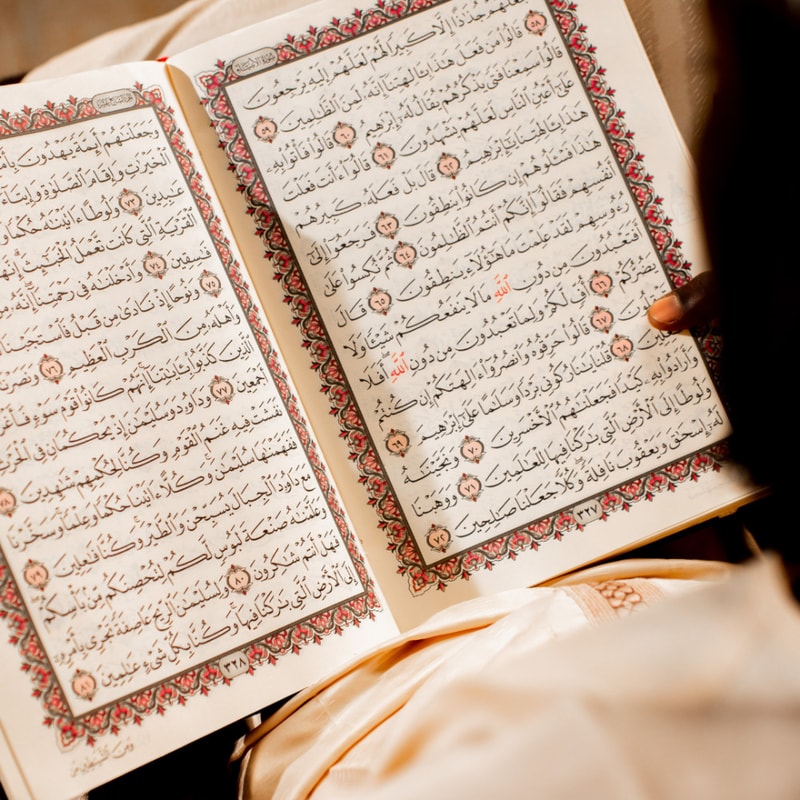 سُورَةُ الأَنبِيَاءِ
جُذَٰذًا إِلَّا كَبِيرًا لَّهُمْ لَعَلَّهُمْ إِلَيْهِ يَرْجِعُونَ
٥٨ قَالُوا۟ مَن فَعَلَ هَٰذَا بِـَٔالِهَتِنَآ إِنَّهُۥ لَمِنَ ٱلظَّٰلِمِينَ ٥٩
قَالُوا۟ سَمِعْنَا فَتًى يَذْكُرُهُمْ يُقَالُ لَهُۥٓ إِبْرَٰهِيمُ ٦٠ قَالُوا۟ فَأْتُوا۟ بِهِۦ
عَلَىٰٓ أَعْيُنِ ٱلنَّاسِ لَعَلَّهُمْ يَشْهَدُونَ ٦١ قَالُوٓا۟ ءَأَنتَ فَعَلْتَ
هَٰذَا بِـَٔالِهَتِنَا يَٰٓإِبْرَٰهِيمُ ٦٢ قَالَ بَلْ فَعَلَهُۥ كَبِيرُهُمْ
هَٰذَا فَسْـَٔلُوهُمْ إِن كَانُوا۟ يَنطِقُونَ ٦٣ فَرَجَعُوٓا۟ إِلَىٰٓ
أَنفُسِهِمْ فَقَالُوٓا۟ إِنَّكُمْ أَنتُمُ ٱلظَّٰلِمُونَ ٦٤ ثُمَّ نُكِسُوا۟ عَلَىٰ
رُءُوسِهِمْ لَقَدْ عَلِمْتَ مَا هَٰٓؤُلَآءِ يَنطِقُونَ ٦٥ قَالَ
أَفَتَعْبُدُونَ مِن دُونِ ٱللَّهِ مَا لَا يَنفَعُكُمْ شَيْـًٔا وَلَا
يَضُرُّكُمْ ٦٦ أُفٍّ لَّكُمْ وَلِمَا تَعْبُدُونَ مِن دُونِ ٱللَّهِ أَفَلَا
٦٧ قَالُوا۟ حَرِّقُوهُ وَٱنصُرُوٓا۟ ءَالِهَتَكُمْ إِن كُنتُمْ
٦٨ قُلْنَا يَٰنَارُ كُونِى بَرْدًا وَسَلَٰمًا عَلَىٰٓ إِبْرَٰهِيمَ ٦٩
وَأَرَادُوا۟ بِهِۦ كَيْدًا فَجَعَلْنَٰهُمُ ٱلْأَخْسَرِينَ ٧٠ وَنَجَّيْنَٰهُ
وَلُوطًا إِلَى ٱلْأَرْضِ ٱلَّتِى بَٰرَكْنَا فِيهَا لِلْعَٰلَمِينَ ٧١ وَوَهَبْنَا
لَهُۥٓ إِسْحَٰقَ وَيَعْقُوبَ نَافِلَةً وَكُلًّا جَعَلْنَا صَٰلِحِينَ ٧٢
٣٢٧
وَجَعَلْنَٰهُمْ أَئِمَّةً يَهْدُونَ
ٱلْخَيْرَٰتِ وَإِقَامَ ٱلصَّلَوٰةِ وَإِيتَآءَ
عَٰبِدِينَ ٧٣ وَلُوطًا ءَاتَيْنَٰهُ حُكْمًا
ٱلْقَرْيَةِ ٱلَّتِى كَانَت تَّعْمَلُ ٱلْخَبَٰٓئِثَ إِنَّهُمْ
فَٰسِقِينَ ٧٤ وَأَدْخَلْنَٰهُ فِى رَحْمَتِنَآ إِنَّهُۥ
٧٥ وَنُوحًا إِذْ نَادَىٰ مِن قَبْلُ فَٱسْتَجَبْنَا
وَأَهْلَهُۥ مِنَ ٱلْكَرْبِ ٱلْعَظِيمِ ٧٦ وَنَصَرْنَٰهُ
ٱلَّذِينَ كَذَّبُوا۟ بِـَٔايَٰتِنَآ إِنَّهُمْ كَانُوا۟ قَوْمَ سَوْءٍ
أَجْمَعِينَ ٧٧ وَدَاوُۥدَ وَسُلَيْمَٰنَ إِذْ يَحْكُمَانِ فِى ٱلْحَرْثِ
نَفَشَتْ فِيهِ غَنَمُ ٱلْقَوْمِ وَكُنَّا لِحُكْمِهِمْ شَٰهِدِينَ ٧٨
فَفَهَّمْنَٰهَا سُلَيْمَٰنَ وَكُلًّا ءَاتَيْنَا حُكْمًا وَعِلْمًا وَسَخَّرْنَا
مَعَ دَاوُۥدَ ٱلْجِبَالَ يُسَبِّحْنَ وَٱلطَّيْرَ وَكُنَّا فَٰعِلِينَ ٧٩
وَعَلَّمْنَٰهُ صَنْعَةَ لَبُوسٍ لَّكُمْ لِتُحْصِنَكُم مِّنۢ بَأْسِكُمْ
فَهَلْ أَنتُمْ شَٰكِرُونَ ٨٠ وَلِسُلَيْمَٰنَ ٱلرِّيحَ عَاصِفَةً تَجْرِى بِأَمْرِهِۦٓ
إِلَى ٱلْأَرْضِ ٱلَّتِى بَٰرَكْنَا فِيهَا وَكُنَّا بِكُلِّ شَىْءٍ عَٰلِمِينَ ٨١
٣٢٨
وَمِنَ ٱلشَّيَٰطِينِ مَن